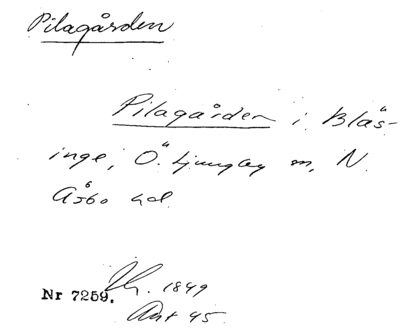 Pilagården
Pilagården i Blås-
inge, Ö. Ljungby sn, N.
Åsbo hd
Nr 7259. 1849
Ant 45